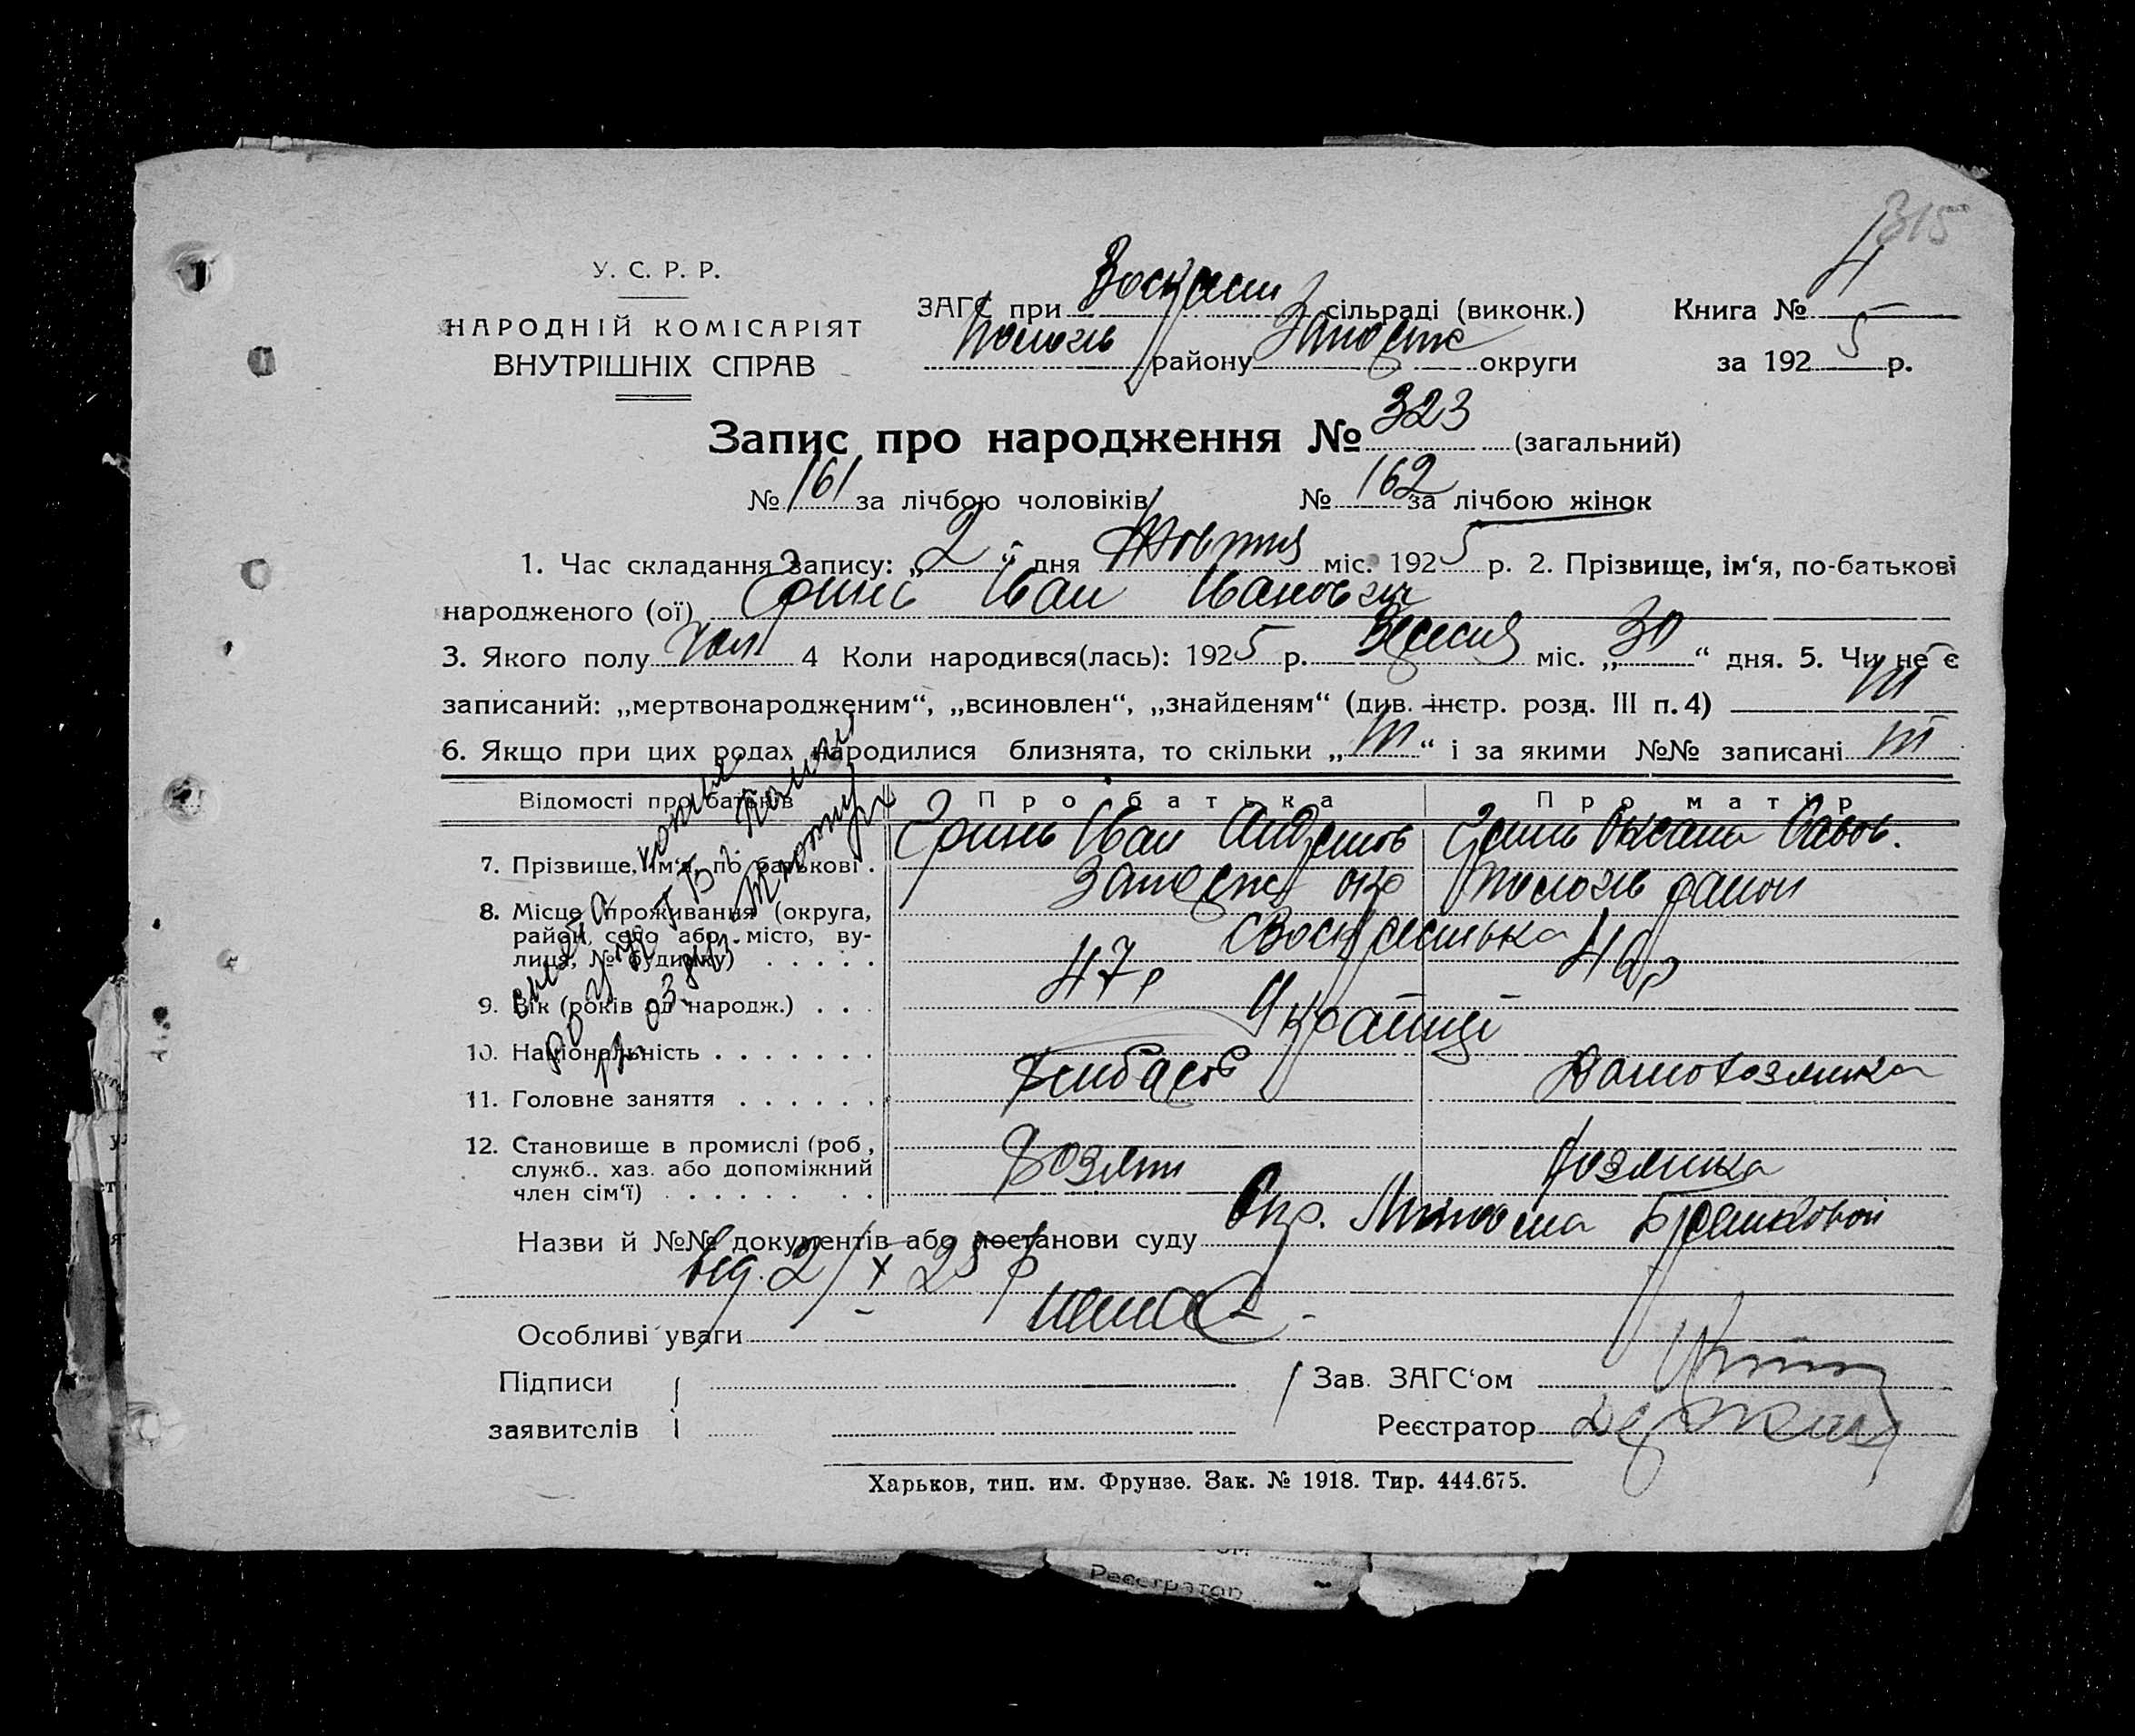 315
У. С. Р. Р.
НАРОДНІЙ КОМІСАРІЯТ
ВНУТРІШНІХ СПРАВ
ЗАГС при Воскресен сільраді (виконк.) Книга № 4
Пологів району Запоріж округи за 1925 р.
Запис про народження № 323 (загальний)
№ 161 за лічбою чоловіків № 162 за лічбою жінок
1. Час складання запису: „2“ дня Жовтня міс. 1925 р. 2. Прізвище, ім‘я, по-батькові
народженого (ої) Гринь Іван Іванович
3. Якого полу чол 4 Коли народився(лась): 1925 р. Вересня міс. „30“ дня. 5. Чи не є
записаний: „мертвонародженим“, „всиновлен“, „знайденям“ (див. інстр. розд. III п. 4) ні
6. Якщо при цих родах народилися близнята, то скільки „ні“ і за якими №№ записані ні
Відомості про батьків Про батька Про матір
7. Прізвище, ім‘я, по батькові . Гринь Іван Андреєв Гринь Оксана Савов.
8. Місце проживання (округа, Запоріж окр Пологів район
район, село або місто, ву- с Воскресенька
лиця, № будинку) . . . . .
9. Вік (років од народж.) . . . 47р 46р
10. Національність . . . . . . . Українці
11. Головне заняття . . . . . . Хлібороб Домохозяйка
12. Становище в промислі (роб,
служб., хаз. або допоміжний Хозяїн Хозяйка
член сім‘ї) . . . . . . . .
Назви й №№ документів або постанови суду
від. 2/X 25 р
Особливі уваги немає
Підписи Зав. ЗАГС‘ом
заявителів Реєстратор
Харьков, тип. им. Фрунзе. Зак. № 1918. Тир. 444.675.
Реєстратор